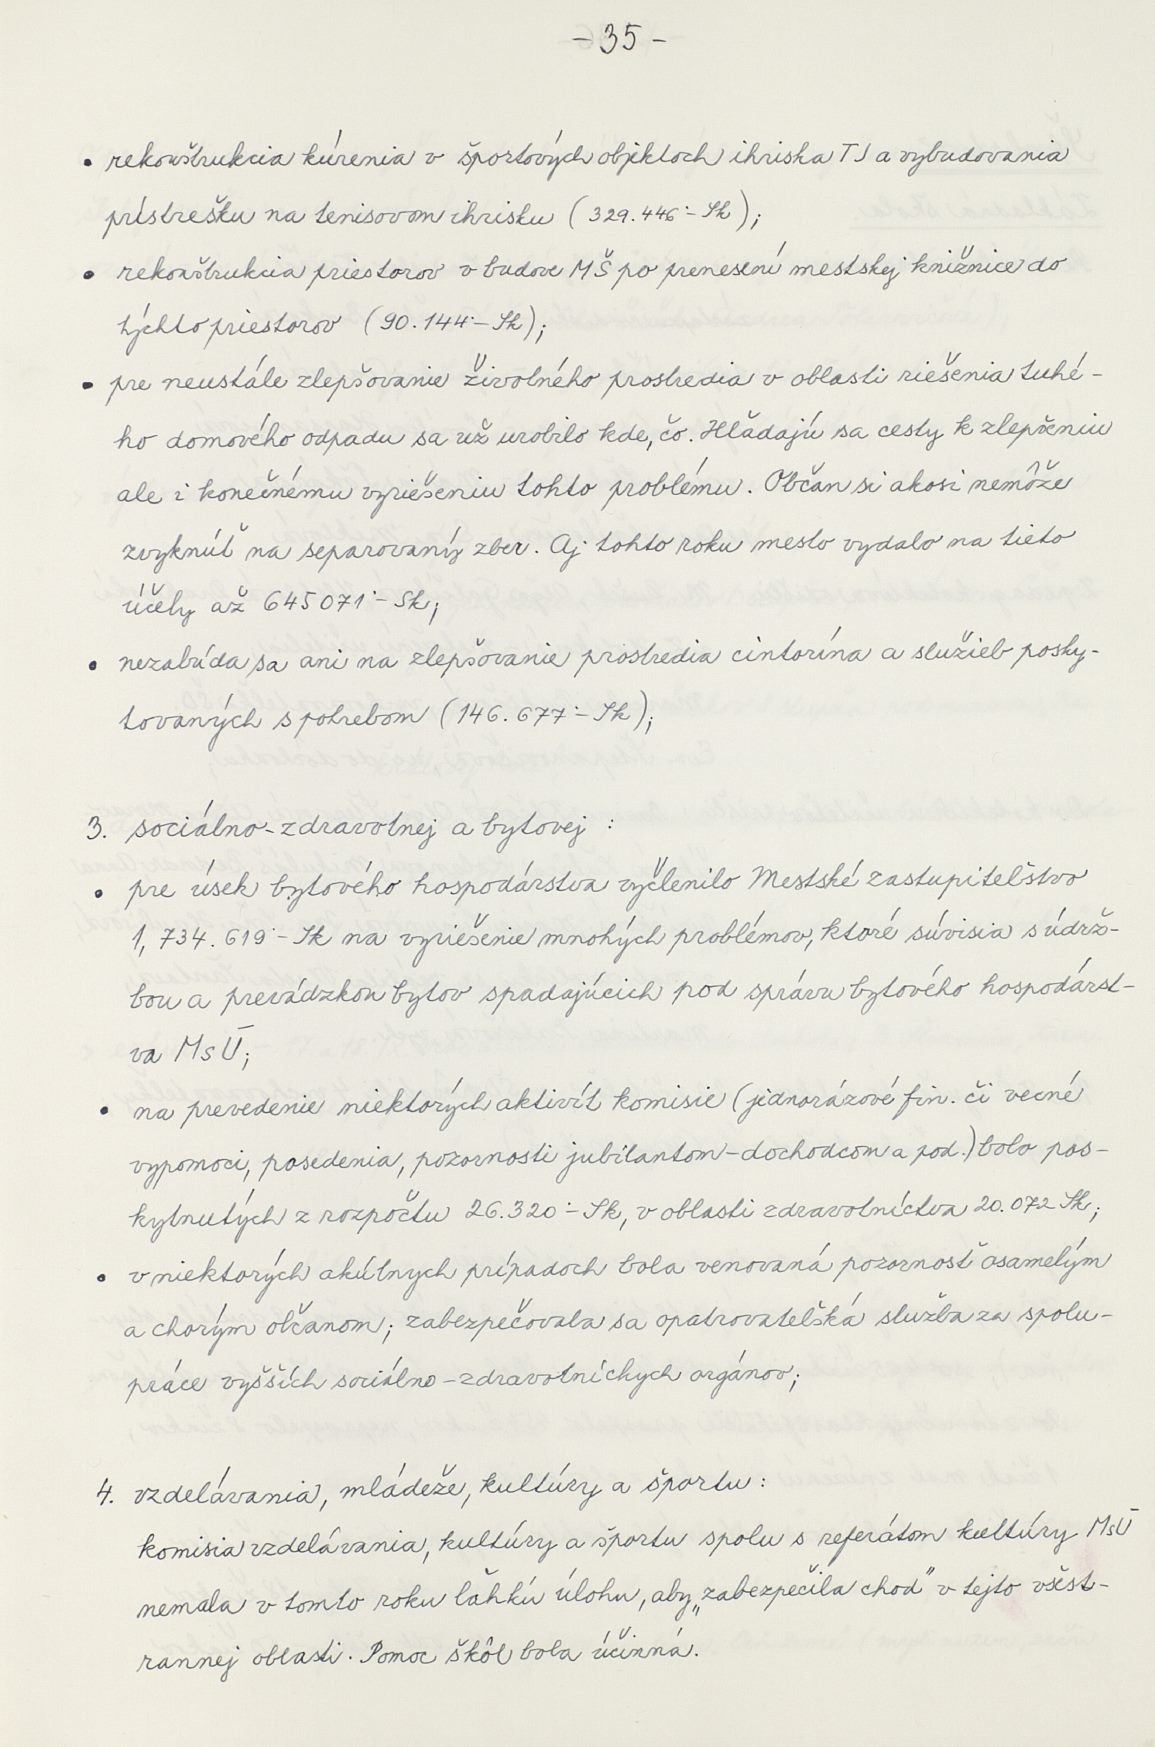 - 35 -
• rekonštrukcia kúrenia v športových objektoch ihriska TJ a vybudovania
prístrešku na tenisovom ihrisku (329.446·- Sk);
• rekonštrukcia priestorov v budove MŠ po prenesení mestskej knižnice do
týchto priestorov (90.144·- Sk);
• pre neustále zlepšovanie životného prostredia v oblasti riešenia tuhé-
ho domového odpadu sa už urobilo kde, čo. Hľadajú sa cesty k zlepšeniu
ale i konečnému vyriešeniu tohto problému. Občan si akosi nemôže
zvyknúť na separovaný zber. Aj tohto roku mesto vydalo na tieto
účely až 645 071·- Sk;
• nezabúda sa ani na zlepšovanie prostredia cintorína a služieb posky-
tovaných s pohrebom (146.677·- Sk);
3. sociálno-zdravotnej a bytovej :
• pre úsek bytového hospodárstva vyčlenilo Mestské zastupiteľstvo
1, 734. 619·- Sk na vyriešenie mnohých problémov, ktoré súvisia s údrž-
bou a prevádzkou bytov spadajúcich pod správu bytového hospodárst-
va MsÚ;
• na prevedenie niektorých aktivít komisie (jednorázové fin. či vecné
vypomoci, posedenia, pozornosti jubilantom-dochodcom a pod.) bolo pos-
kytnutých z rozpočtu 26.320·- Sk, v oblasti zdravotníctva 20.072 Sk;
• v niektorých akútnych prípadoch bola venovaná pozornosť osamelým
a chorým občanom; zabezpečovala sa opatrovateľská služba za spolu-
práce vyšších sociálno-zdravotníckych orgánov;
4. vzdelávania, mládeže, kultúry a športu :
komisia vzdelávania, kultúry a športu spolu s referátom kultúry MsÚ
nemala v tomto roku ľahkú úlohu, aby „zabezpečila chod" v tejto všest-
rannej oblasti. Pomoc škôl bola účinná.